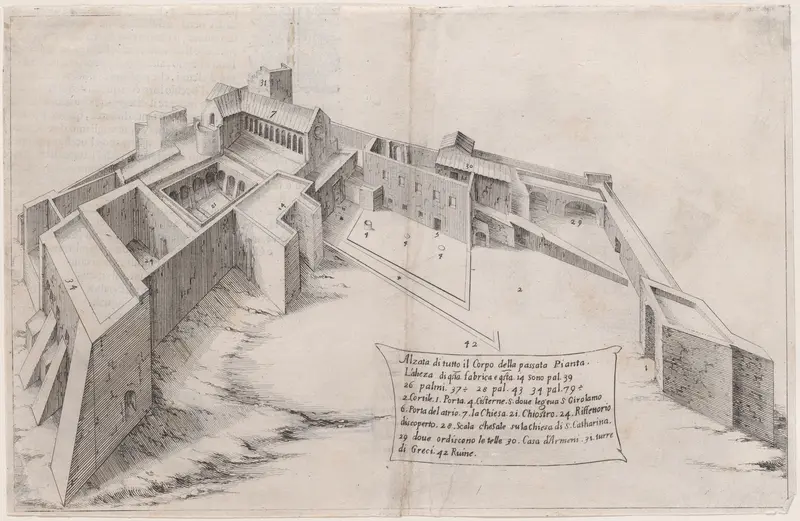 31
7
30
29
34
5
4
4
4
2
42
1
Alzata di tutto il Corpo della passata Pianta.
L'alteza di qsta fabrica e qsta. 14 sono pal. 39
26 palmi. 37÷ 28 pal. 43 34 pal. 79÷
2. Cortile. 1. Porta. 4. Cisterne. 5. doue legeua S. Girolamo
6. Porta del atrio. 7. la Chiesa. 21. Chiostro. 24.
discoperto. 28. Scala che sale su la chiesa di S. Catharina.
29 doue ordiscono le telle 30. Casa d'Armeni. 31. torre
di Greci. 42 Ruine.